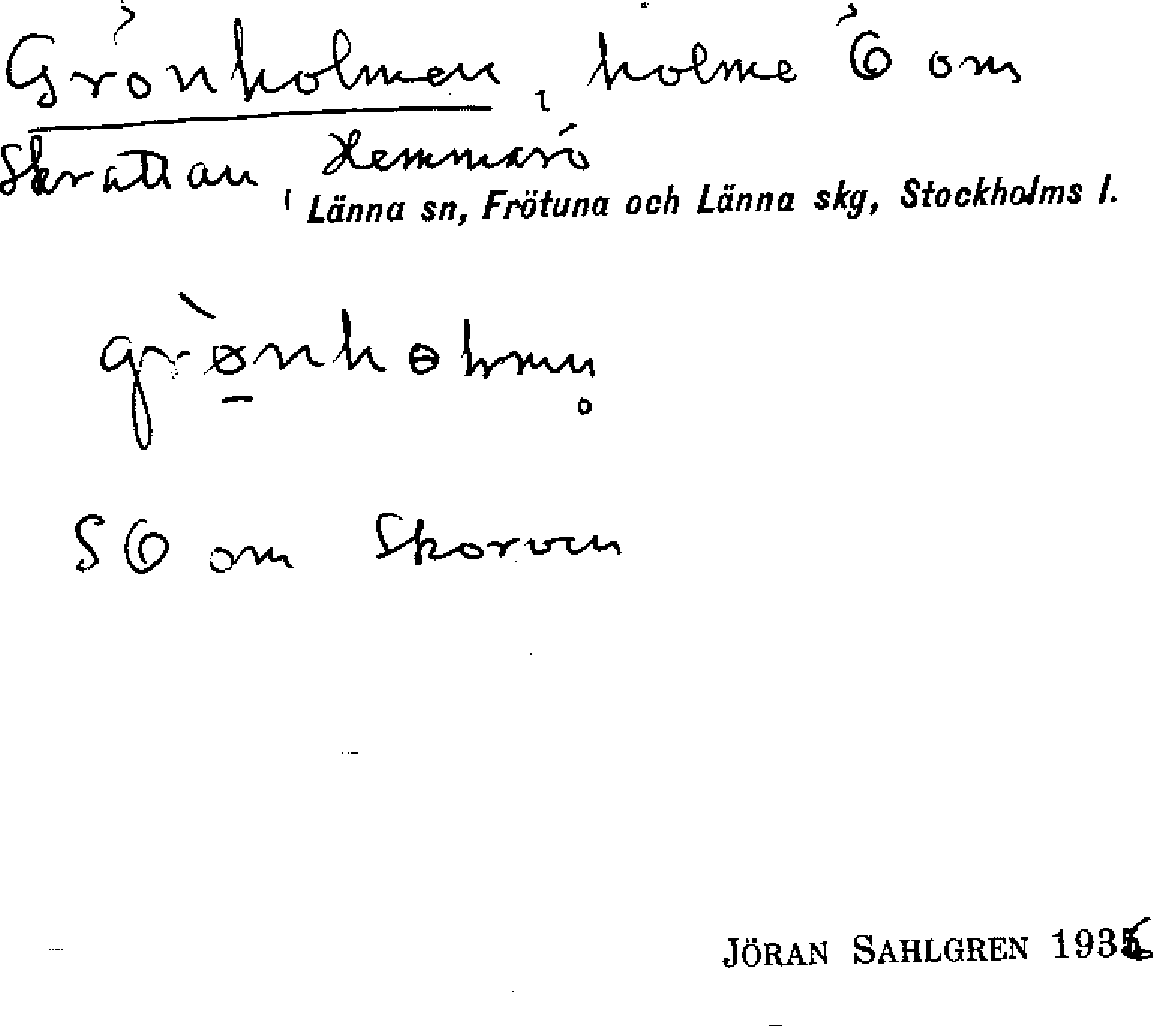 Grönholmen, holme Ö om
Skrattan, Hemmarö
Länna sn, Frötuna och Länna skg, Stockholms l.
grø̀nhɵlmn̥
SÖ om Skorven
JÖRAN SAHLGREN 1936